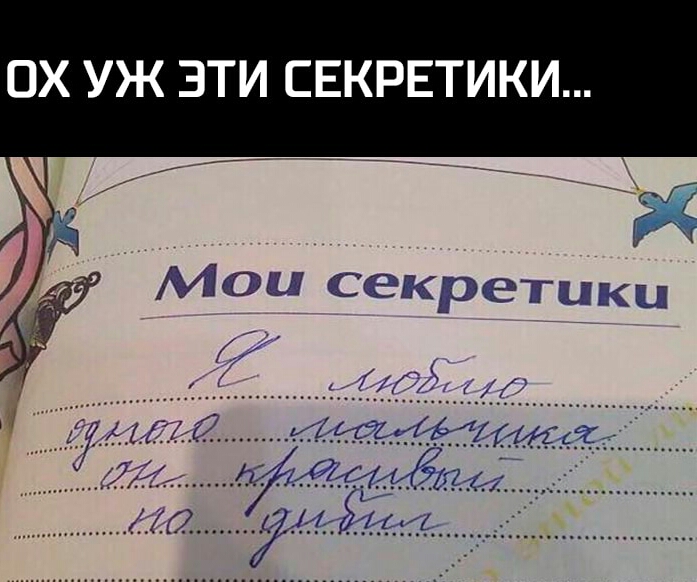 ОХ УЖ ЭТИ СЕКРЕТИКИ...
Мои секретики
Я люблю
одного мальчика
он красивый
но дибил